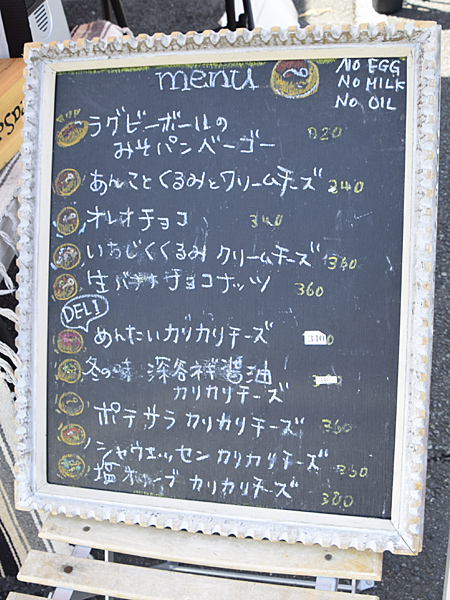 menu
NO EGG
NO MILK
NO OIL
ラグビーボールの
みそパンベーゴー 320
あんことくるみとクリームチーズ 340
オレオチョコ 340
いちじくくるみ クリームチーズ 340
生バナナチョコナッツ 360
DELI
めんたいカリカリチーズ
冬の味 深谷 醤油
カリカリチーズ
ポテサラカリカリチーズ 360
シャウエッセンカリカリチーズ 360
塩オリーブカリカリチーズ 320